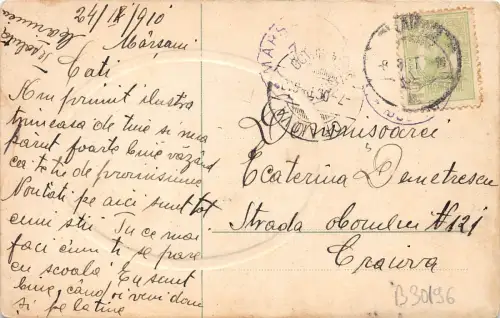 24/IX/910
Mârșani
Cati
Am primit ilustra
trimeasa de tine si mia
părut foarte bine văzând
ca-ti de promisiune
Noutati pe aici sunt tot
cum stii Tu ce mai
faci cum ti se pare
cu scoala Eu sunt
bine, când oi veni dau
si pe la tine
Domnisoarei
Ecaterina Demetrescu
Strada oborului N 121
Craiova
B 30196
MARS